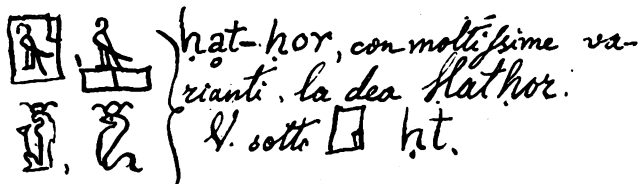 ḥat-ḥor, con moltissime va-
rianti, la dea Hathor.
V. sotto 𓉗 ḥt.